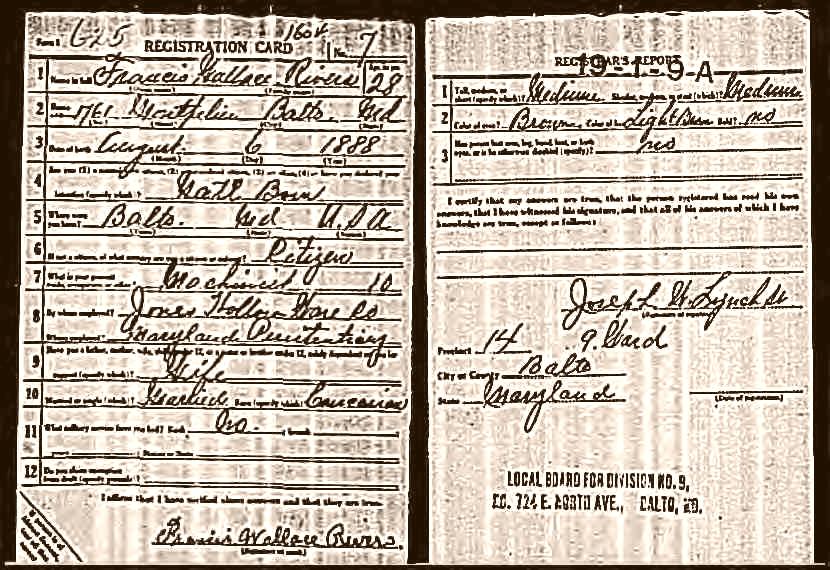 Form 1 625 REGISTRATION CARD 1604 No. 7
1 Name in full Francis Wallace Rivers Age, in yrs. 28
(Given name) (Family name)
2 Home 1761 Montpelier Balto. Md
(No.) (Street) (City) (State)
3 Date of birth August 6 1888
(Month) (Day) (Year)
4 Are you (1) a natural-born citizen, (2) a naturalized citizen, (3) an alien, (4) or have you declared your
intention (specify which)? Natl Born
5 Where were you born? Balto. Md U.S.A
(Town) (State) (Nation)
6 If not a citizen, of what country are you a citizen or subject? Citizen
7 What is your present trade, occupation, or office? Machinist 10
8 By whom employed? Jones Hollow Ware Co
Where employed? Maryland Penitentiary
9 Have you a father, mother, wife, child under 12, or a sister or brother under 12, solely dependent on you for
support (specify which)? Wife
10 Married or single (which)? Married Race (specify which)? Caucasian
11 What military service have you had? Rank No. ; branch
years ; Nation or State
12 Do you claim exemption
from draft (specify grounds)?
I affirm that I have verified above answers and that they are true.
Francis Wallace Rivers.
(Signature or mark)
If person is of
African descent,
REGISTRAR'S REPORT
19-1-9-A
1 Tall, medium, or short (specify which)? Medium Slender, medium, or stout (which)? Medium
2 Color of eyes? Brown Color of hair? Light Brown Bald? no
3 Has person lost arm, leg, hand, foot, or both
eyes, or is he otherwise disabled (specify)? no
I certify that my answers are true, that the person registered has read his own
answers, that I have witnessed his signature, and that all of his answers of which I have
knowledge are true, except as follows:
Joseph W. Lynch
(Signature of registrar)
Precinct 14 9. Ward
City or County Balto
State Maryland
(Date of registration)
LOCAL BOARD FOR DIVISION NO. 9,
724 E. NORTH AVE., BALTO, MD.